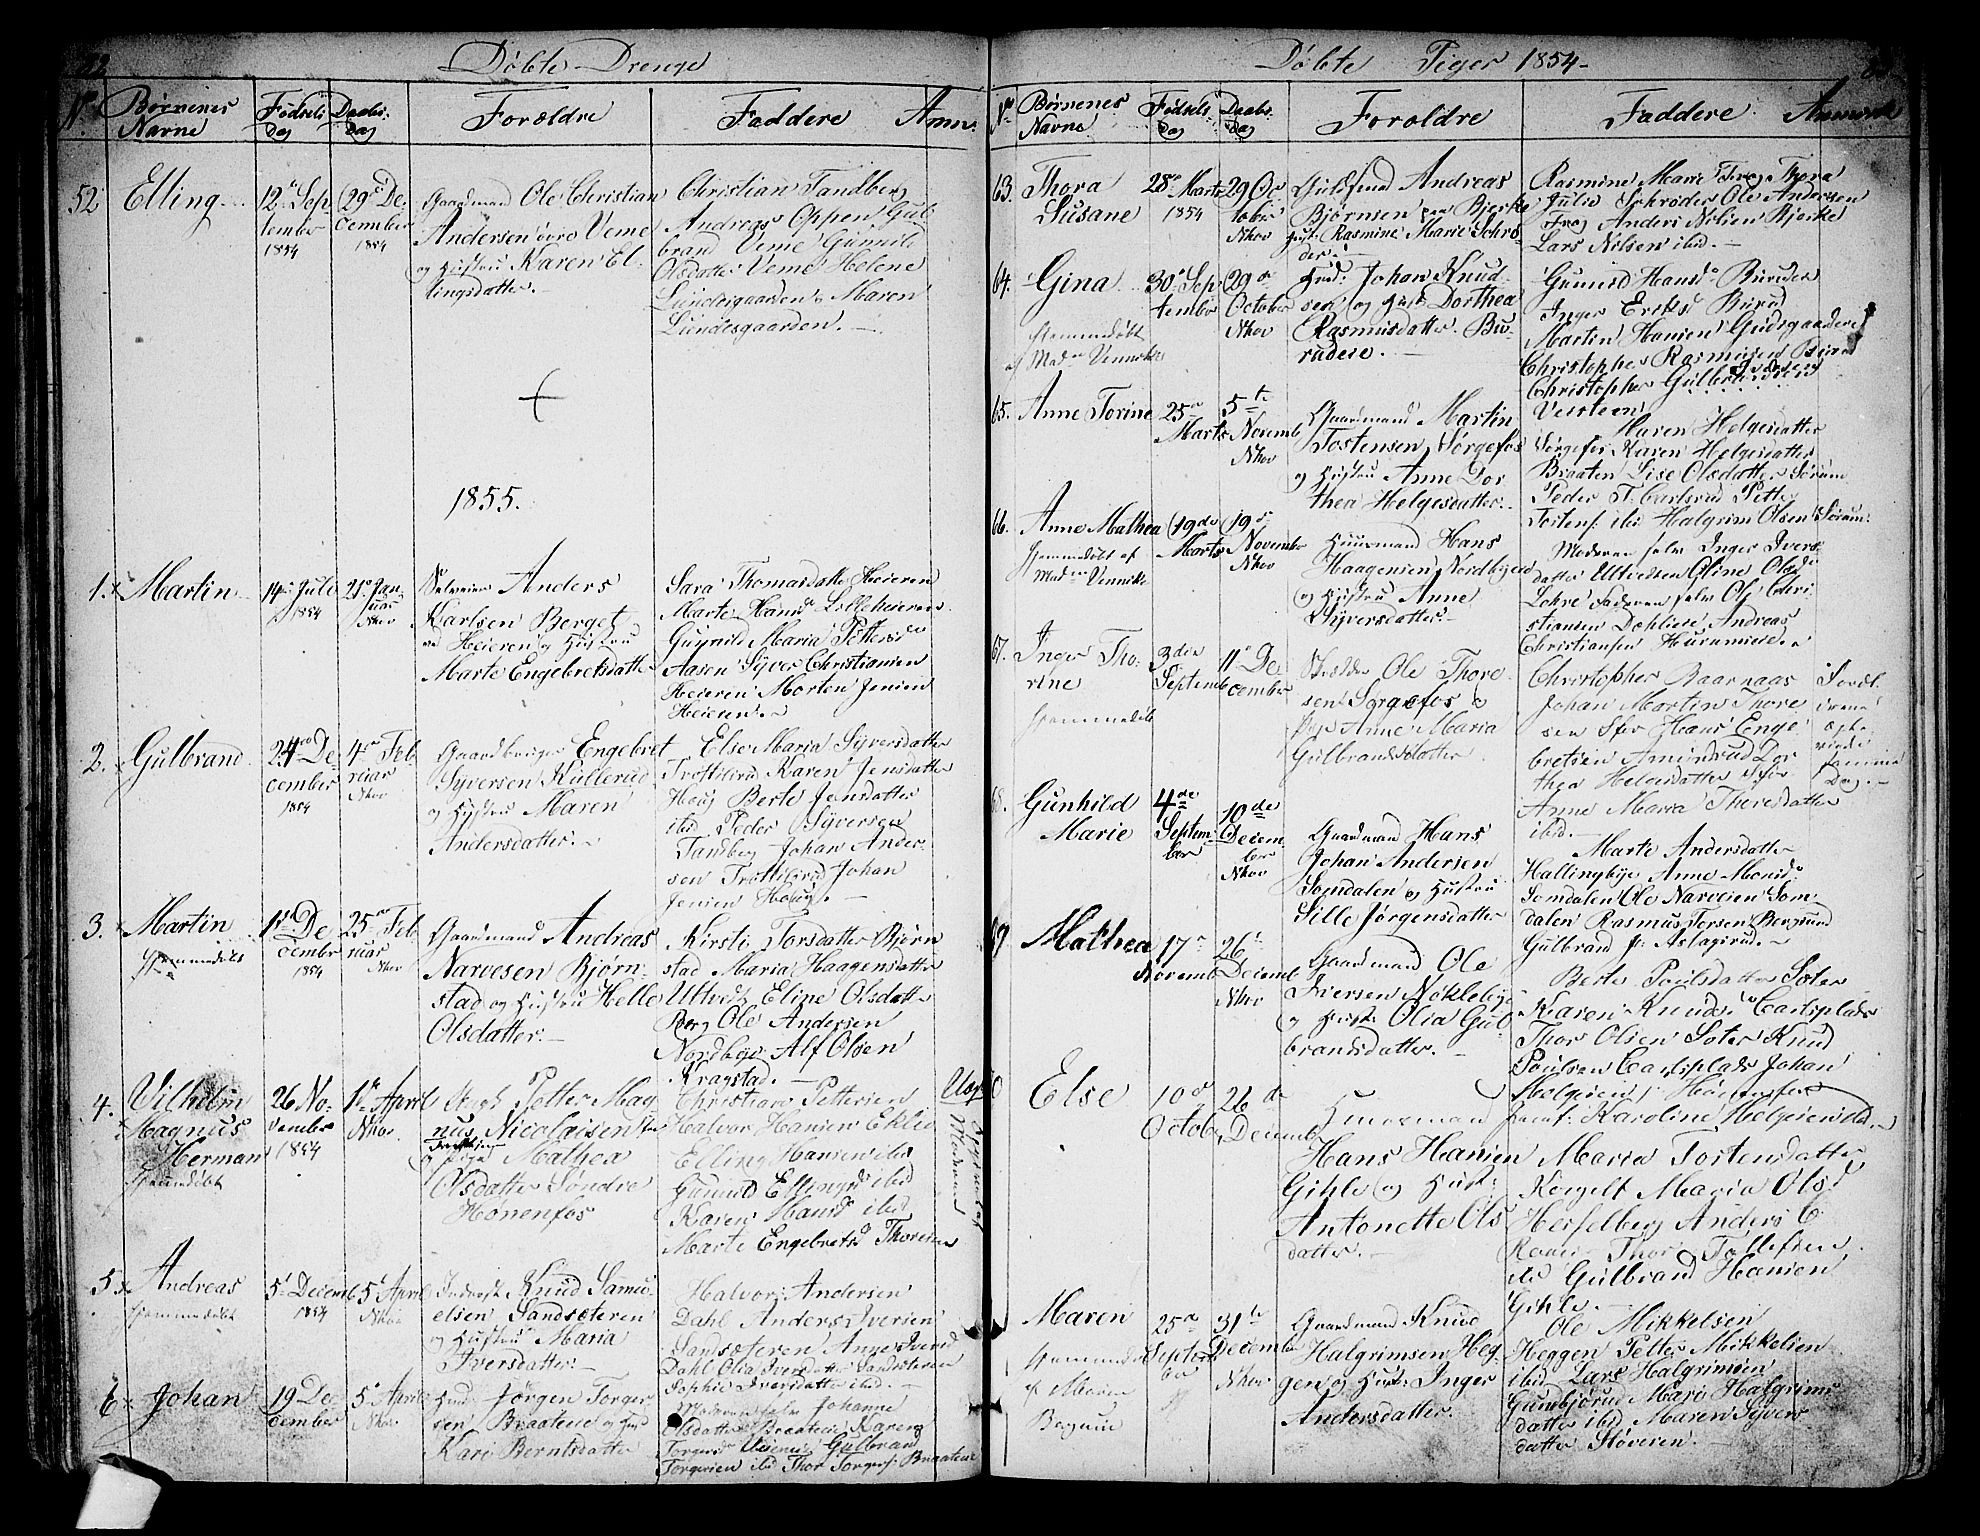 82
Døbte Drenge
No Børnenes Navne
Fødsels Dag
Daabs Dag
Forældre
Faddere
Anm:
52
Elling
12te September 1854
29de December 1854
Gaardmand Ole Christian
Andersen øvre Veme
og Hustru Karen El-
lingsdatter.
Christian Tandberg
Andreas Oppen Gul
brand Veme Gunnild
Olsdatter Veme Helene
Lundesgaarden Maren
Lundesgaarden.
1855.
1.
Martin
14de Juli 1854
21de Januar Nkov
Anders
Karlsen Berget
Heieren og Hustru
Marte Engebretsdatter
Sara Thomasdatter Heieren
Marte Hansd Lilleheieren
Gunnild Maria Pettersd
Aasen Syver Christiansen
Heieren Morten Jensen
Heieren.
2.
Gulbrand
24de December 1854
4de Februar Nkov
Gaardbruger Engebret
Syversen Kullerud
og Hustru Maren
Andersdatter.
Else Maria Syversdatter
Trottilrud Karen Jensdatter
Houg Berte Jensdatter
ibid Peder Syversen
Tandberg Johan Ander-
sen Trottilrud Johan
Jensen Houg.
3.
Martin
hjemmedøbt
1de December 1854
25de Februar Nkov
Gaardmand Andreas
Narvesen Bjørn-
stad og Hustru Helle
Olsdatter.
Kirsti Torsdatter Bjørn
stad Maria Haagensdatter
Ultvedt Eline Olsdatter
Berg Ole Andersen
Nordbye Alf Olsen
Kragstad.
4.
Vilhelm
Magnus
Herman
hjemmedøbt
26 November 1854
1te April Nkov
Petter Mag
nus Nicolaisen
og Pige Mathea
Olsdatter Søndre
Hønenfos
Christian Pettersen
Halvor Hansen Eklid
Elling Hansen ibid
Gunnild Ellingsd ibid
Karen Hansd ibid
Marte Engebretsd Thoresen
Uægte
Moderens
5
Andreas
hjemmedøbt
5te December 1854
5te April Nkov
Inderst Knud Samu-
elsen Sandsæteren
og Hustru Maria
Iversdatter
Halvor Andersen
Dahl Anders Iversen
Sandsæteren Anne Iversd
Dahl Olia Iversdatter Sandsæteren
Sophie Iversdatter ibid
6
Johan
19 December
5te April Nkov
Jørgen Torger-
sen Braatene og
Kari Berntsdatter
Moderen selv Johanne
Olsdatter Braatene Karen
Torgersd Gulbrand
Torgersen ibid Thor Torgers: Braatene
Døbte Piger 1854
No Børnenes Navne
Fødsels Dag
Daabs Dag
Forældre
Faddere
63.
Thora
Susane
28de Marts 1854
29 October Nkov
Andreas
Bjørnsen Bjerke
Hust: Rasmine Marie Schrø-
der.
Rasmine Marie Frøg Thora
Julie Schrøder Ole Andersen
Frøg Anders Nilsen Bjerke
Lars Nilsen ibid.
64.
Gina
hjemmedøbt
af Mad Vennike
30te September
29de October Nkov
Johan Knud
sen og Hust: Dorthea
Rasmusdatter Bu-
rudeie.
Gunild Hansd Burudeie
Inger Eriksd Burud
Martin Hansen Gudsgaarden
Christopher Rasmusen
Christopher Gulbrandsen
Veisteen
65.
Anne Torine
25de Marts
5te November Nkov
Gaardmand Martin
Tostensen Sørgefos
og Hustru Anne Dor
thea Helgesdatter.
Maren Helgesdatter
Sørgefos Karen Helgesdatter
Braaten Lise Olsdatter Sørum
Peder T. Carlsrud Petter
Tostens: ibid Halgrim Olsen Sørum
66.
Anne Mathea
hjemmedøbt af
Mad Vennike
19de Marts
19de November Nkov
Huusmand Hans
Haagensen Nordbyeie
og Hustru Anne
Syversdatter
Moderen selv Inger Ivers
datter Ultvedteie Oline Olsd
Lohre Faderen selv Ole Chri
stiansen Dæhlieie Andreas
Christiansen
67.
Inger Tho-
rine
hjemmedøbt
3die September
11te December
Ole Thore
sen Sørgefos
Pige Anne Maria
Gulbrandsdatter
Christopher Baarnaas
Johan Martin Thore
sen Hans Enge
bretsen Amundrud Dor
thea Helgesdatter
Anne Maria Thoresdatter
ibid.
68.
Gunhild
Marie
4de September
10de December Nkov
Gaardmand Hans
Johan Andersen
Somdalen og Hustru
Sille Jørgensdatter
Marte Andersdatter
Hallingbye Anne Monsd
Somdalen Ole Narvesen Som
dalen Rasmus Torsen Bergsund
Gulbrand J: Aslagsrud.
69
Mathea
17de November
26de December Nkov
Gaardmand Ole
Iversen Nøklebye
og Hust: Olia Gul
brandsdatter.
Berte Poulsdatter Soter
Karen Knudsd Carlsplads
Thor Olsen Soter Knud
Poulsen Carlsplads Johan
Helgesen Hønenfos
Karoline Helgesen ibid.
Else
10de October
26de December
Huusmand
Hans Hansen
Gihle og Hust:
Antonette Ols
datter.
Maria Tostensdatter
Maria Olsd
Hesselberg Anders C.
Thor Tollefsen
ibid Gulbrand Hansen
Gihle.
Maren
hjemmedøbt
af Maren
25de September
31te December Nkov
Gaardmand Knud
Halgrimsen Heg-
gen og Hust: Inger
Andersdatter.
Ole Mikkelsen
Heggen Petter Mikkelsen
ibid Lars Halgrimsen
Gunbjørud Mari Halgrims
datter ibid Maren Syvers
datter Støveren.